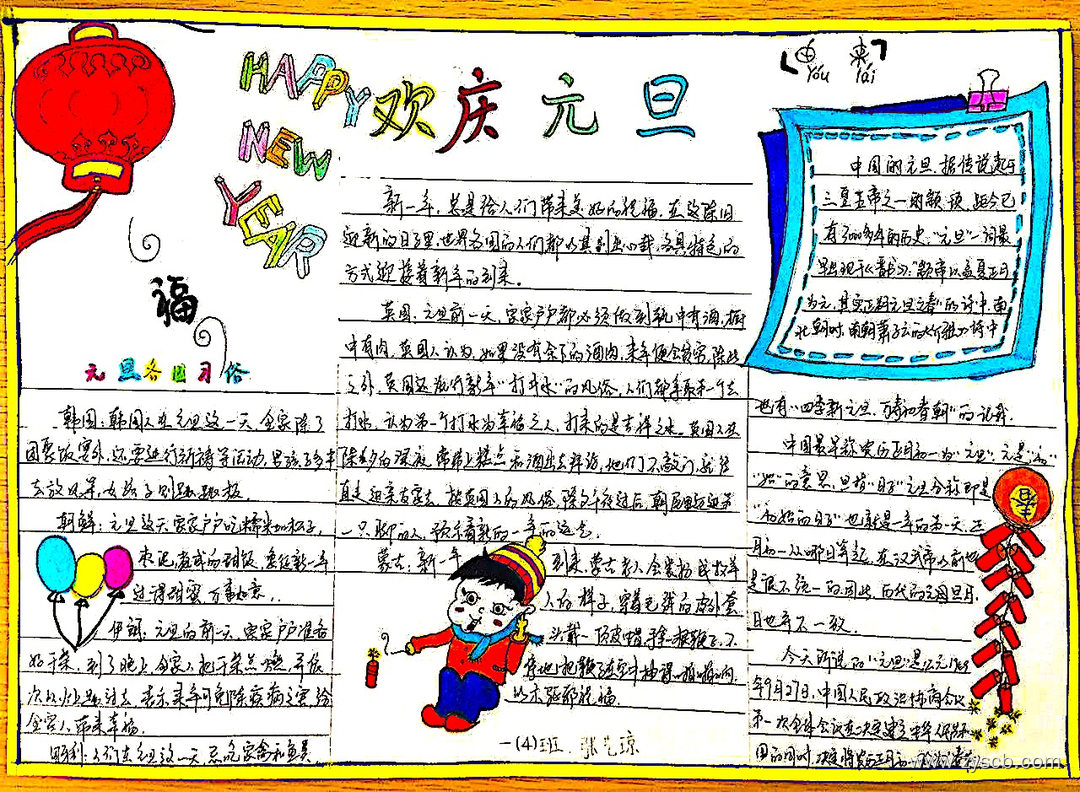 HAPPY
NEW
YEAR
欢庆元旦
「由来」
Yóu lái
福
元旦各国习俗
韩国:韩国人在元旦这一天,全家除了
团聚饭宴外,还要进行祈祷等活动,男孩子多半
去放风筝,女孩子则跳跳板。
朝鲜:元旦这天家家户户吃糯米加松子,
枣泥,煮成的甜饭,象征新一年
过得甜蜜,万事如意。
伊朗:元旦的前一天,家家户户准备
好干柴,到了晚上,全家人把干柴点燃,并依
次从火上跳过去,表示来年可驱除疾病之害,给
全家人带来幸福。
匈牙利:人们在元旦这一天,忌吃家禽和鱼类
新一年,总是给人们带来美好的祝福,在这除旧
迎新的日子里,世界各国的人们都以其别出心裁,各具特色的
方式迎接着新年的到来。
英国:元旦前一天,家家户户都必须做到瓶中有酒,橱
中有肉,英国人认为,如果没有余下的酒肉,来年便会贫穷,除此
之外,英国还流行新年"打井水"的风俗,人们都争取第一个去
打水,认为第一个打水为幸福之人,打来的是吉祥之水。英国人在
除夕的深夜,常带上糕点和酒出去拜访,他们不敲门,就径
直走进亲友家去,按英国人的风俗,除夕午夜过后,朝屋里迈进第
一只脚的人,预示着新的一年的运气。
蒙古:新一年 到来,蒙古老人会装扮成牧羊
人的样子,穿着毛绒的皮外套
头戴一顶皮帽,手拿一根鞭子,不
停地把鞭子在空中抽得啪啪响,
以示驱邪祝福
一(4)班 张艺琼
中国的元旦,据传说起于
三皇五帝之一的颛顼,距今已
有3000多年的历史,"元旦"一词最
早出现于《晋书》:"颛帝以孟夏正月
为元,其实正朔元旦之春"的诗中,南
北朝时,南朝萧子云的《介雅》诗中
也有"四季新元旦,万寿初春朝"的记载。
中国最早称农历正月初一为"元旦",元是"初"
"始"的意思,旦指"日子"元旦合称即是
"初始的日子"也就是一年的第一天。正
月初一从哪日算起,在汉武帝以前也
是很不统一的,因此,历代的元旦月、
日也并不一致。
今天所说的"元旦"是公元1949
年9月27日,中国人民政治协商会议
第一次全体会议在决定建立中华人民共和
国的同时,